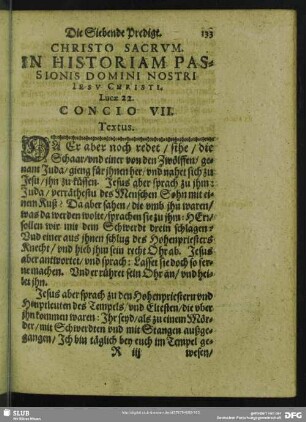 Die Siebende Predigt. 133
CHRISTO SACRVM.
IN HISTORIAM PAS-
SIONIS DOMINI NOSTRI
IESV CHRISTI.
Lucæ 22.
CONCIO VII.
Textus.
DA Er aber noch redet / sihe / die
Schaar / vnd einer von den Zwölffen / ge-
nant Juda / gieng für ihnen her / vnd nahet sich zu
Jesu / ihn zu küssen. Jesus aber sprach zu ihm:
Juda / verräthestu des Menschen Sohn mit ei-
nem Kuß? Da aber sahen / die vmb ihn waren /
was da werden wolte / sprachen sie zu ihm: HErr /
sollen wir mit dem Schwerdt drein schlagen?
Vnd einer aus ihnen schlug des Hohenpriesters
Knecht / vnd hieb ihm sein recht Ohr ab. Jesus
aber antwortet / vnd sprach: Lasset sie doch so fer-
ne machen. Vnd er rühret sein Ohr an / vnd hei-
let ihn.
Jesus aber sprach zu den Hohenpriestern vnd
Heuptleuten des Tempels / vnd Eltesten / die vber
ihn kommen waren: Ihr seyd / als zu einem Mör-
der / mit Schwerdten vnd mit Stangen außge-
gangen / Ich bin täglich bey euch im Tempel ge-
R iij wesen /
SLUB